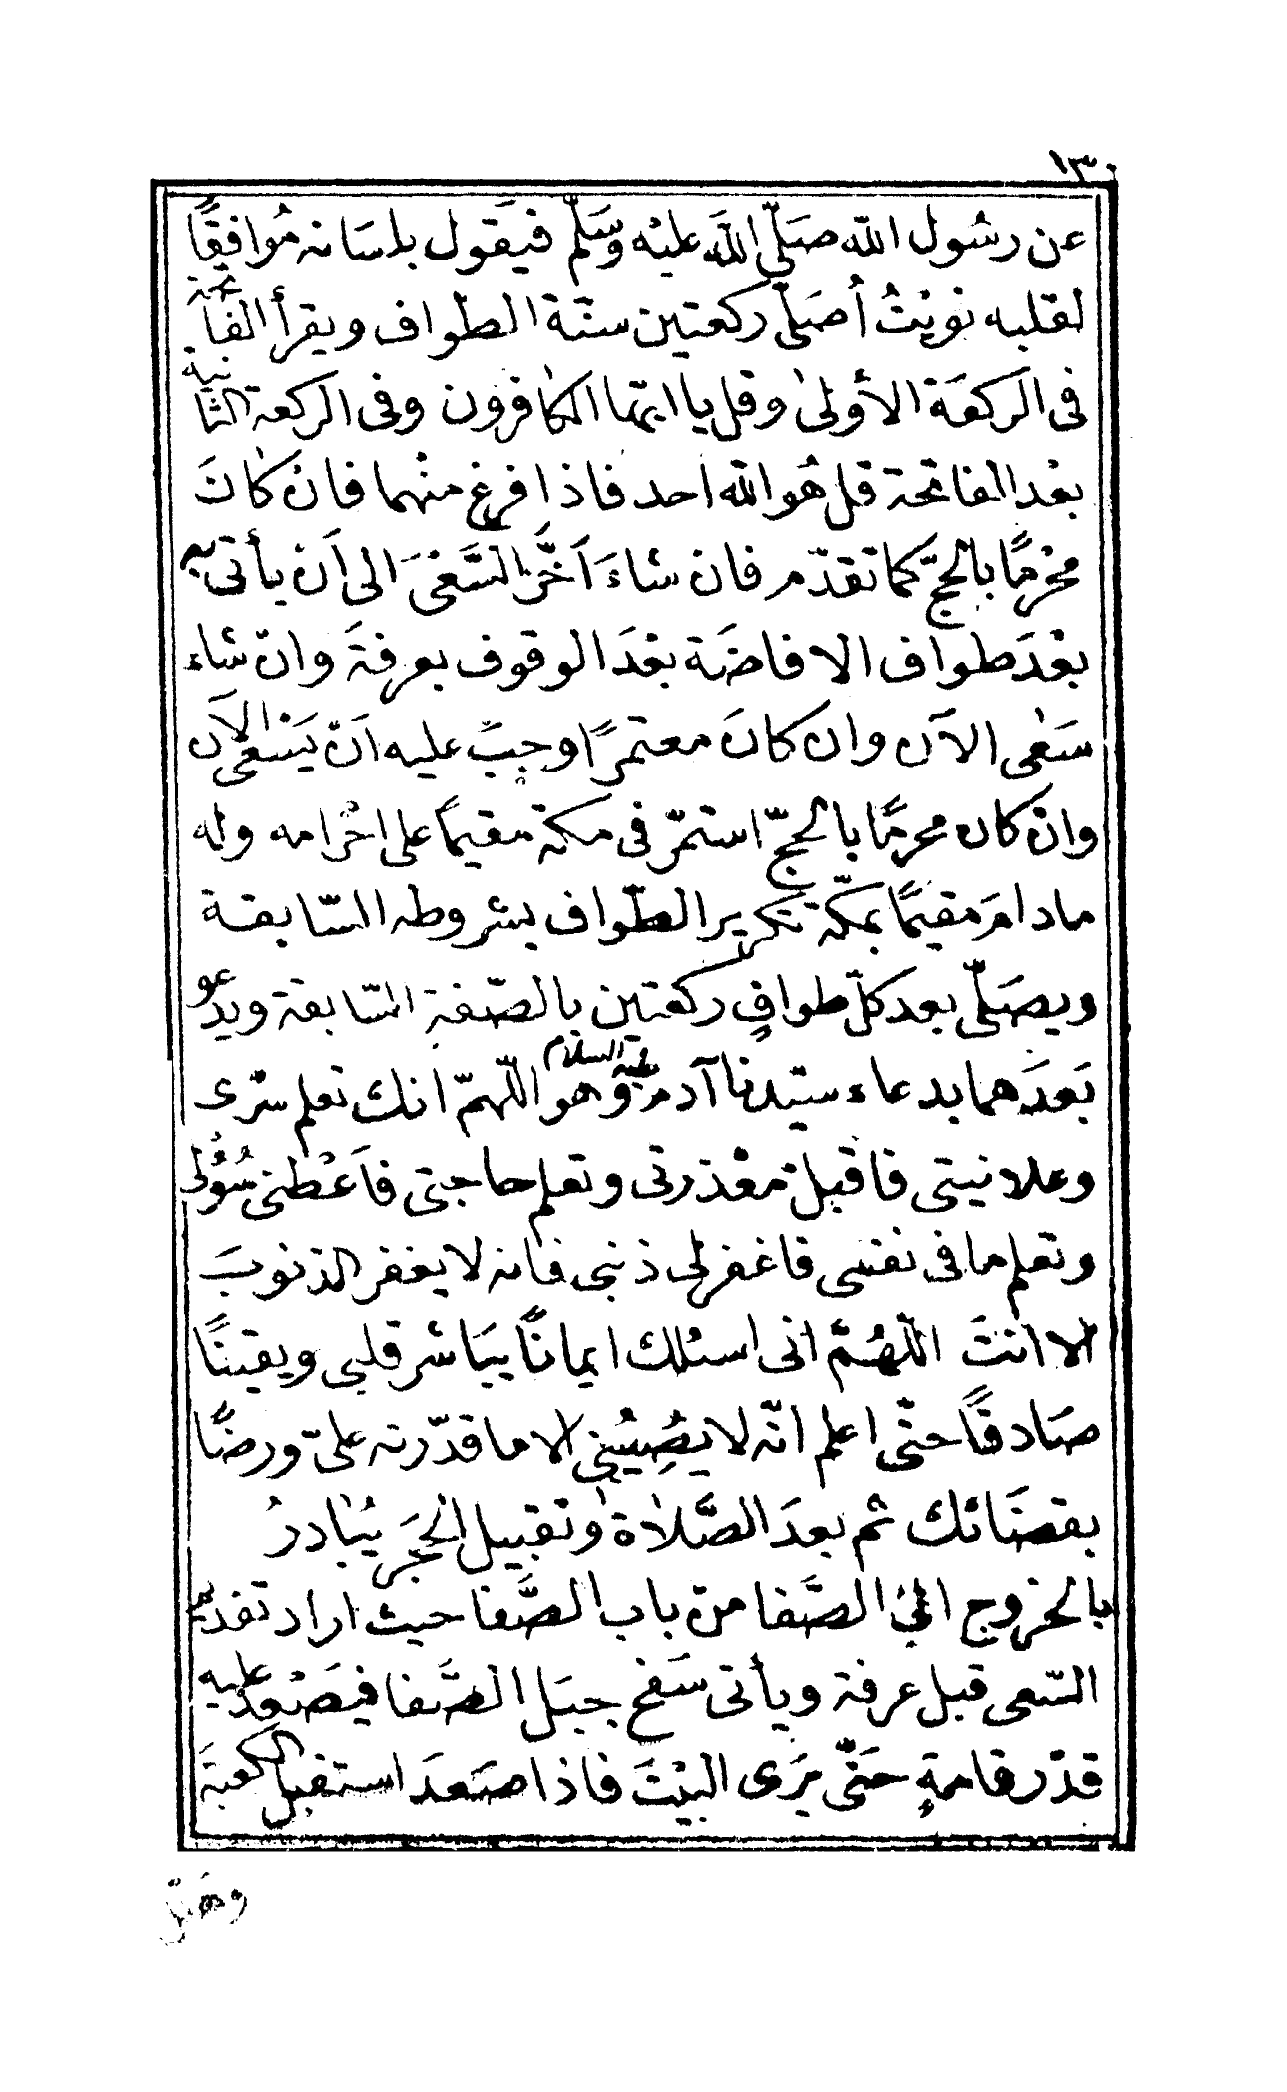 ١٣٠
عن رسُول الله صَلّى اللهَ عليْه وسَلّم فيَقول بلسَانه مُوافِقًا
لقلبه نويْتُ أصَلّى ركعتين سنّة الطواف ويقرأ الفاتحة
فى الركعَة الأولىٰ وقل يا ايّها الكافرون وفى الركعة الثانية
بعْد الفاتحة قل هُو الله احد فاذا فرغ منْهما فانْ كانَ
محْرمًا بالحجّ كما تقدّم فان شاءَ اَخَّرَ السَّعْىَ الى اَن يأتى به
بعْدَ طواف الافاضَة بعْدَ الوقوف بعرفةَ وانْ شاء
سَعٰى الآن وان كانَ معتمرًا وجبَ عليه اَنْ يَسْعى الآن
وانْ كان محرمًا بالحجّ استمرّ فى مكة مقيمًا على احْرامه وله
مادامَ مقيمًا بمكّة تكرير الطّواف بشروطه السّابقة
ويصَلّى بعد كلّ طوافٍ ركعتين بالصّفة السّابقة ويدعو
بَعدَهما بدعاء سيّدنا آدم عليه السلام وهو اللّهمّ انك تعلم سرّى
وعلانيتى فاقبلْ معْذرتى وتعلم حاجتى فاَعْطنى سُؤْلى
وتعلم ما فى نفسى فاغفر لى ذنبى فانه لا يغفر الذنوبَ
الا انتَ اللّهُمَّ انى اسئلك ايمانًا يبَاشر قلبى ويقينًا
صَادقًا حتّى اعلم انّه لا يصُيبُنى الا ما قدّرته علىّ ورضًا
بقضَائك ثم بعدَ الصَّلاة وتقبيل الحجَر يُبَادرُ
بالخروج الىٰ الصَّفا من باب الصَّفا حيث اراد تقديم
السّعى قبل عرفة ويأتى سَفح جبَل الصَّفا فيصْعد عليه
قدْر قامةٍ حَتّى يرَى البيْتَ فاذا صَعدَ استقبل الكعبَة
وهلّل